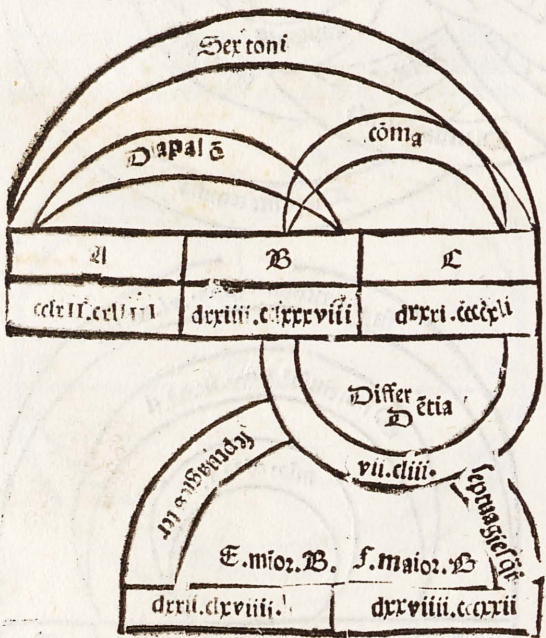 Sex toni
Diapasō
cōma
A B C
cclxii.cxliiii dxxiiii.cclxxxviii dxxxi.ccccxli
Differ
ētia
vii.cliii.
septuagies
E.mīor.B. F.maior.B
dxxii.clxviiii. dxxviiii.cccxxii